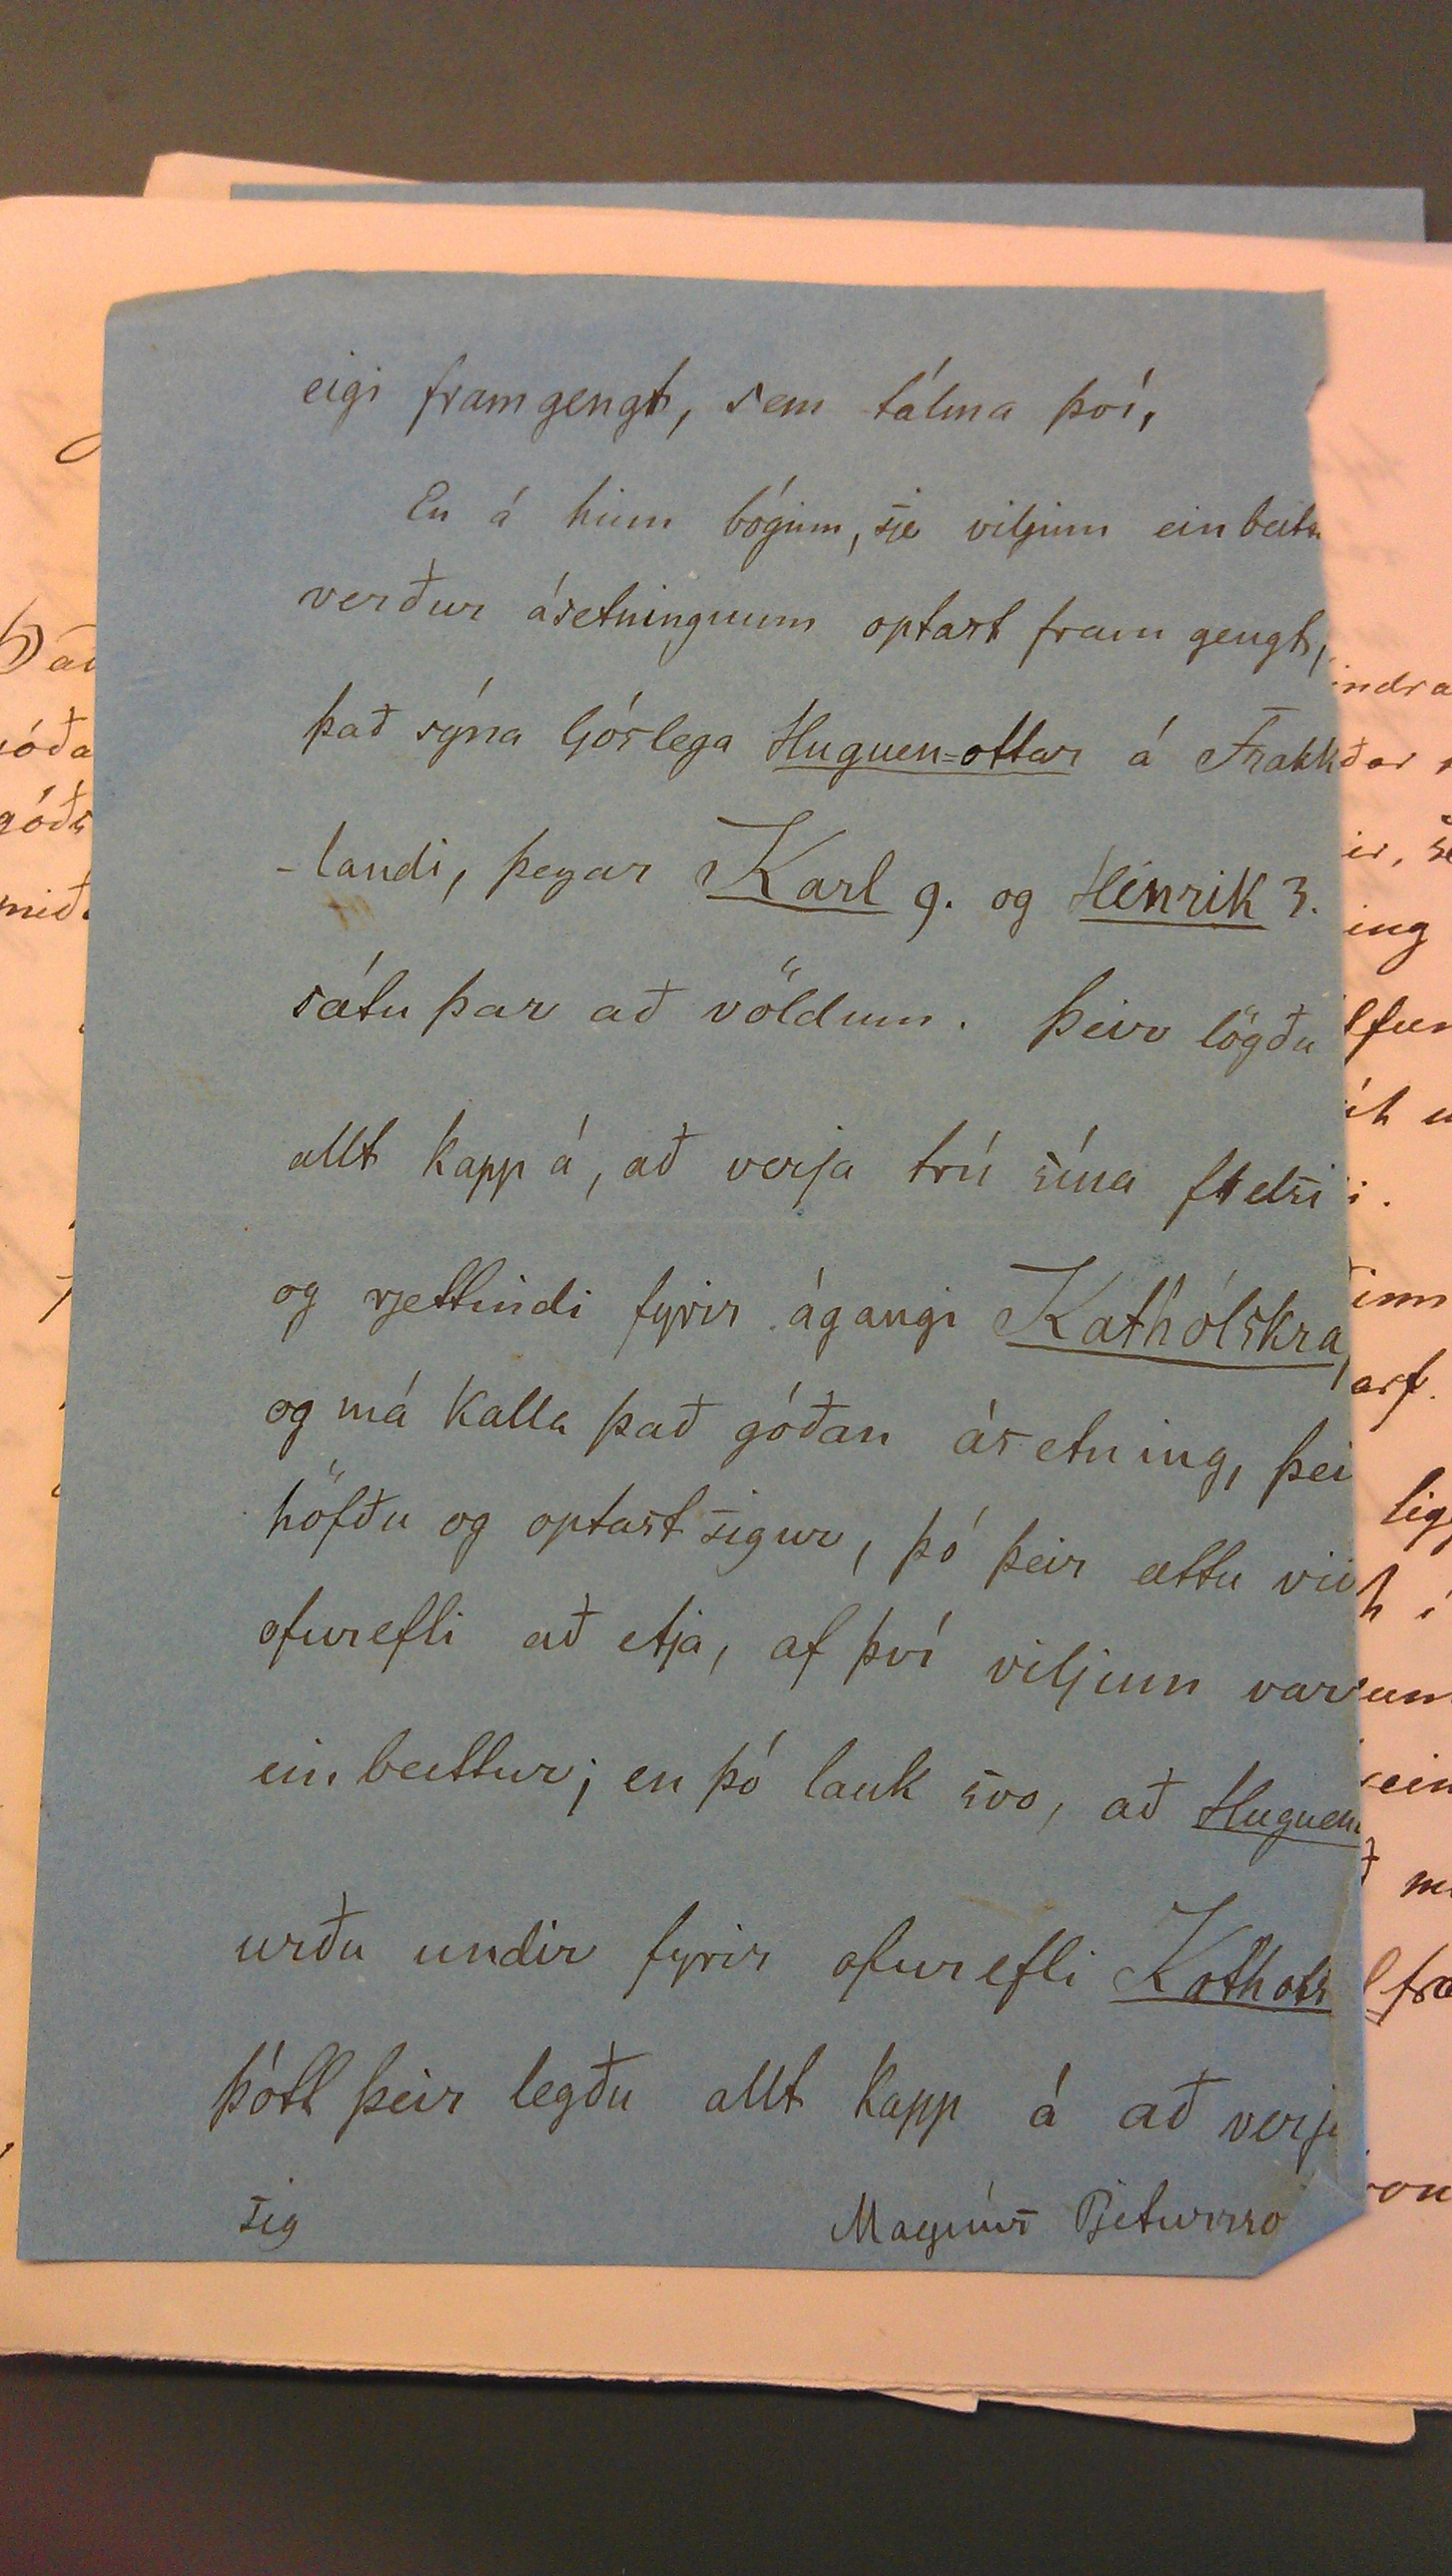 eigi framgengt, sem tálma því,
En á hinn bóginn, sje viljinn einbeitt
verður ásetningnum optast fram gengt,
það sýna ljóslega Huguen=ottar á Frakk
-landi, þegar Karl 9. og Hinrik 3.
sátu þar að völdum. Þeir lögðu
allt kapp á, að verja trú sína frelsi
og rjettindi fyrir ágangi Kathólskra,
og má kalla það góðan ásetning, þei
höfðu og optast sigur, þó þeir ættu við
ofurefli að etja, af því viljinn var
einbeittur; en þó lauk svo, að Huguen
urðu undir fyrir ofurefli Kathols
þótt þeir legðu allt kapp á að verja
sig Magnús Pjetursso